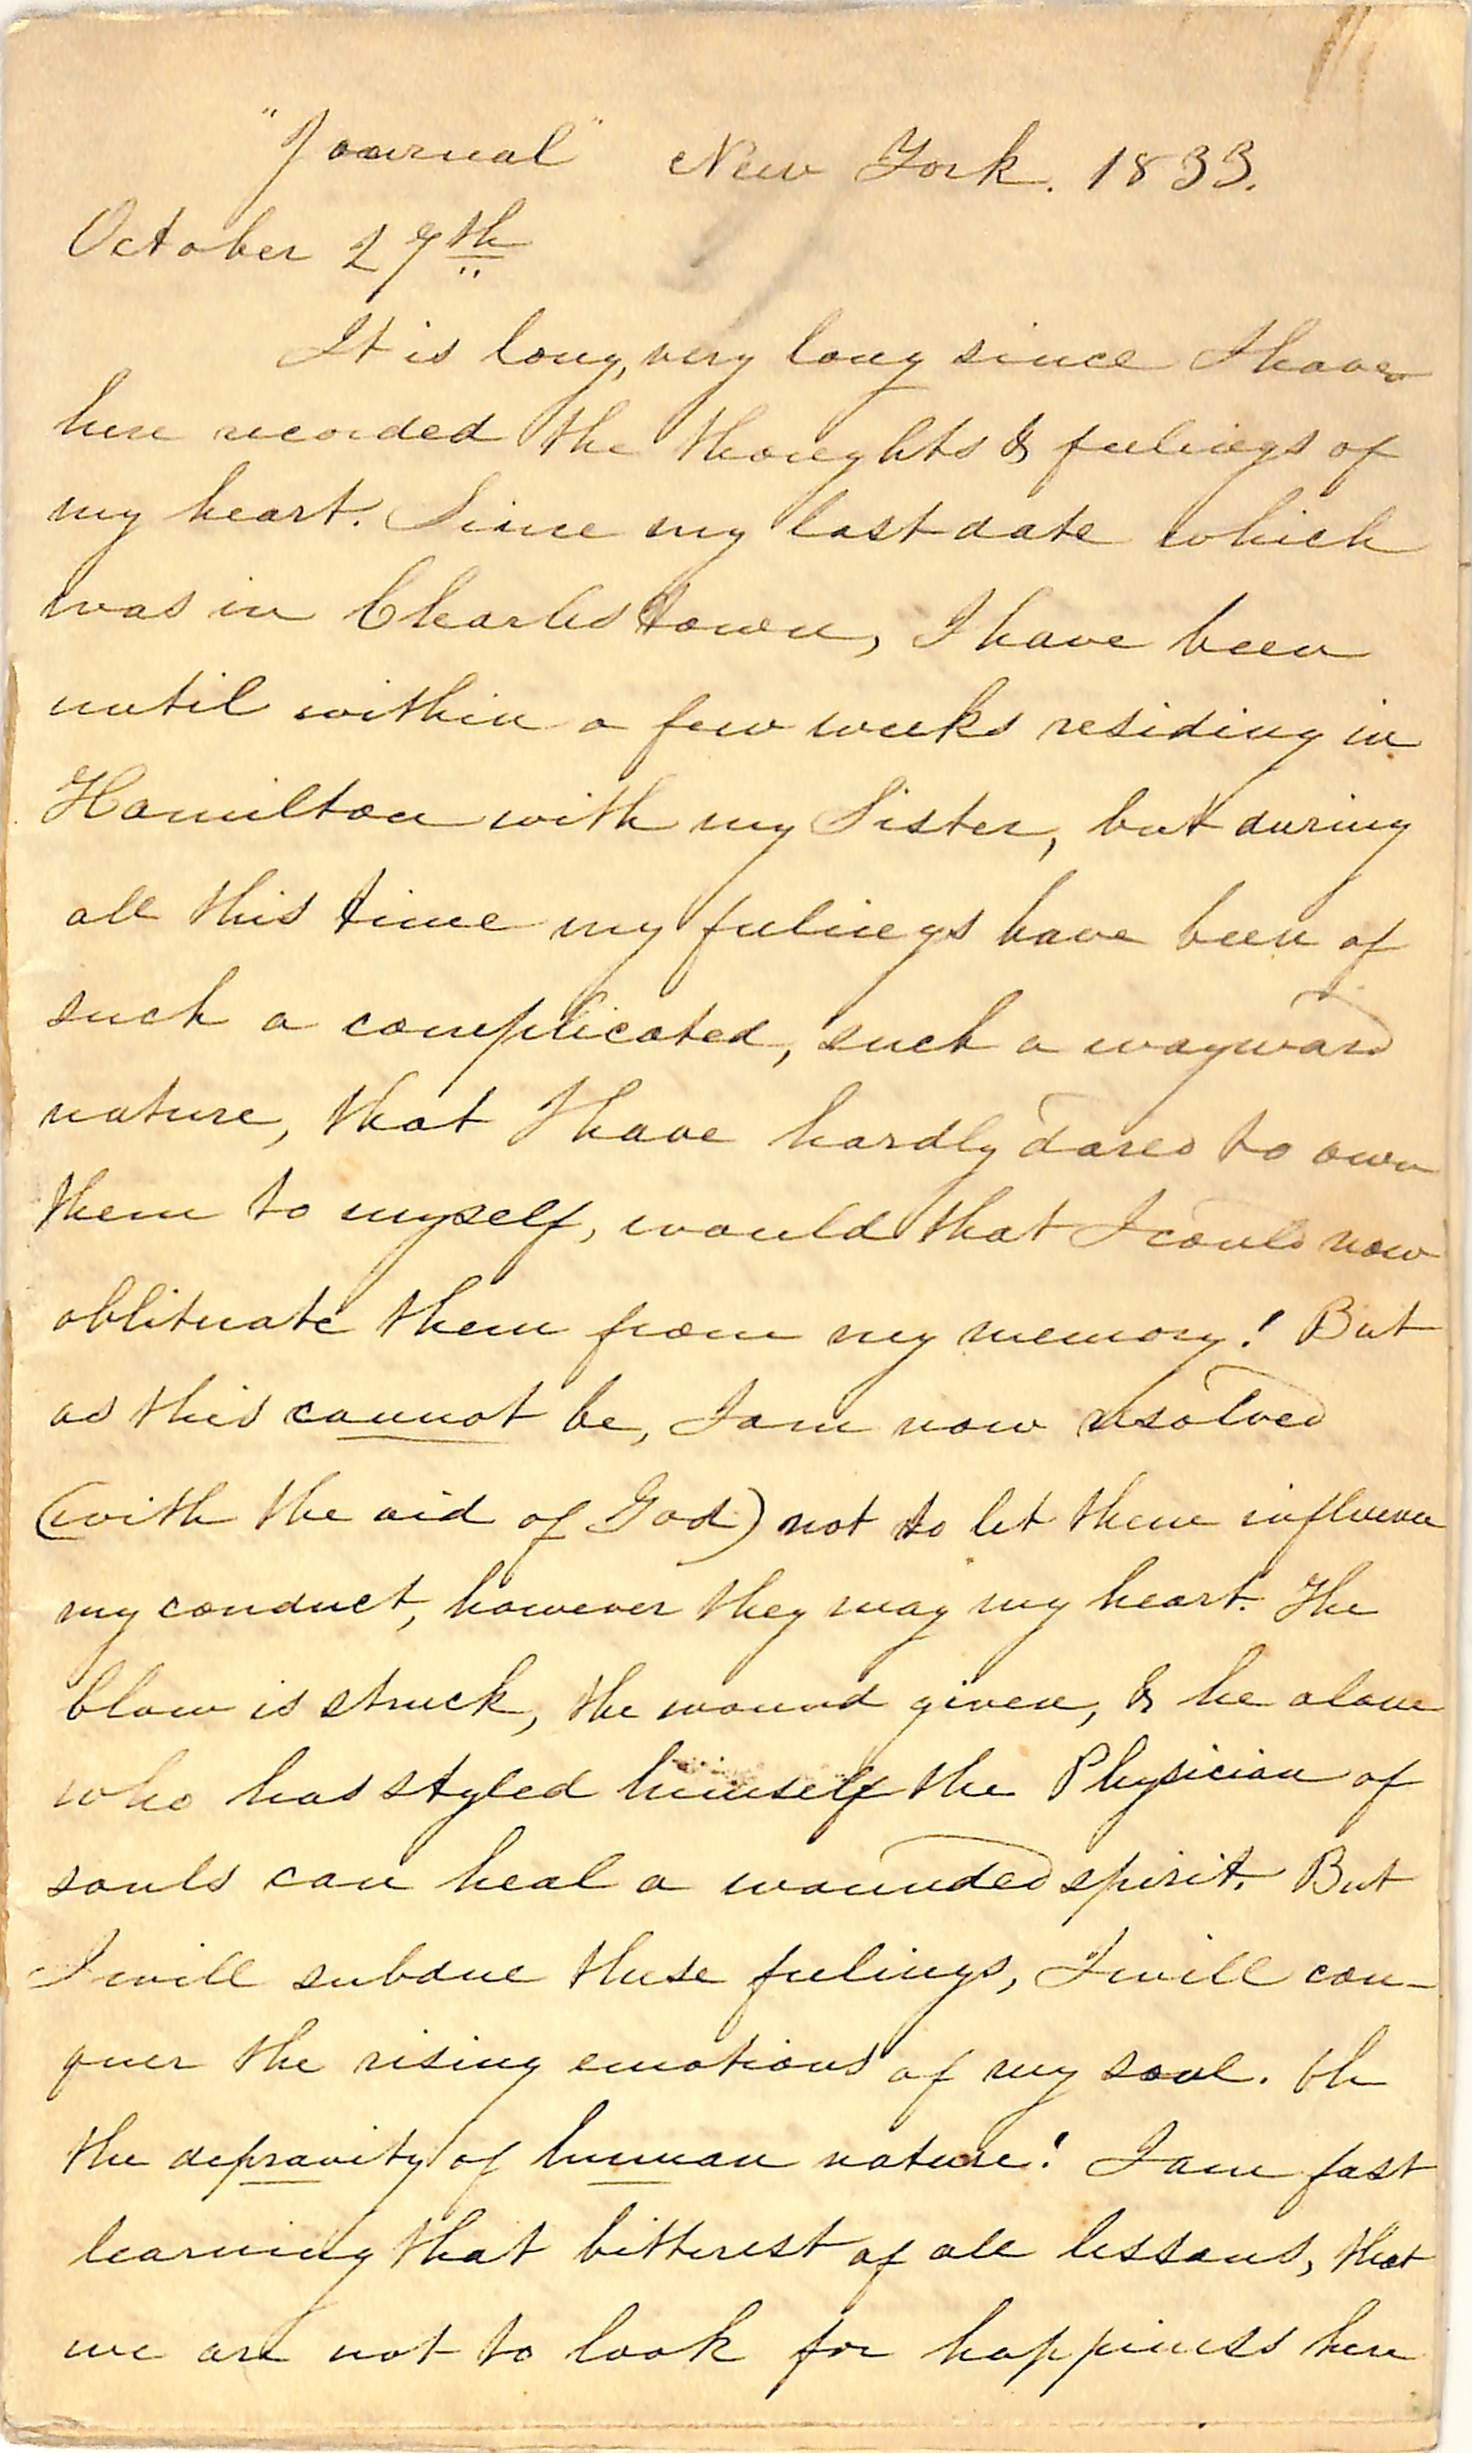 "Journal" New York. 1833.
October 27th
It is long, very long since I have
here recorded the thoughts & feelings of
my heart. Since my last date which
was in Charlestown, I have been
until within a few weeks residing in
Hamilton with my Sister, but during
all this time my feelings have been of
such a complicated, such a wayward
nature, that I have hardly dared to own
them to myself, would that I could now
obliterate them from my memory! But
as this cannot be, I am now resolved
(with the aid of God) not to let them influence
my conduct, however they may my heart. The
blow is struck, the wound given, & he alone
who has styled himself the Physician of
souls can heal a wounded spirit. But
I will subdue these feelings, I will con-
quer the rising emotions of my soul. Oh
the depravity of human nature! I am fast
learning that bitterest of all lessons, that
we are not to look for happiness here